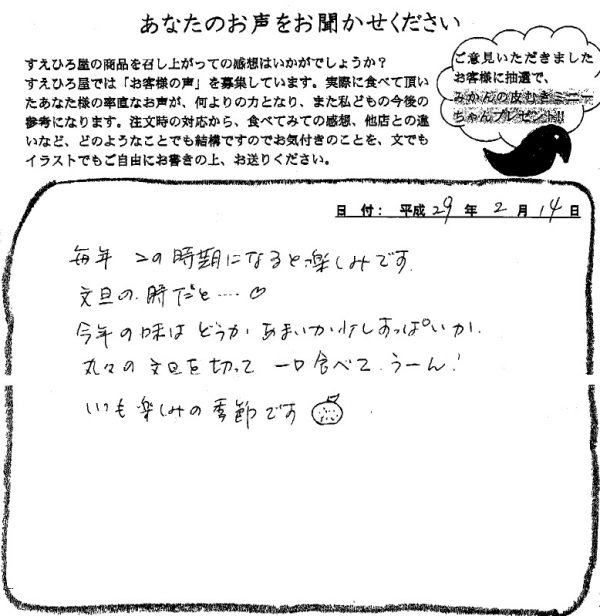 あなたのお声をお聞かせください
すえひろ屋の商品を召し上がっての感想はいかがでしょうか？
すえひろ屋では「お客様の声」を募集しています。実際に食べて頂い
たあなた様の率直なお声が、何よりの力となり、また私どもの今後の
参考になります。注文時の対応から、食べてみての感想、他店との違
いなど、どのようなことでも結構ですのでお気付きのことを、文でも
イラストでもご自由にお書きの上、お送りください。
ご意見いただきました
お客様に抽選で、
みかんの皮むきミニー
ちゃんプレゼント!!
日 付： 平成 29 年 2 月 14 日
毎年 この時期になると楽しみです。
文旦の時だと……♡
今年の味は どうか あまいか少しすっぱいか.
丸々の文旦を切って 一口食べて. うーん!
いつも楽しみの季節です